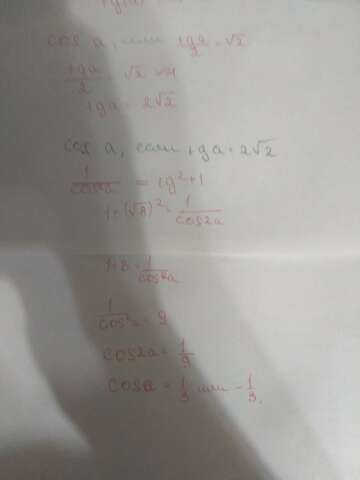 cos a, или tga/2 = √2
tga/2 √2
tga = 2√2
cos a, если tga = 2√2
1/cos²a = tg²+1
1+(√8)² = 1/cos2a
1+8 = 1/cos²a
1/cos² = 9
cos2a = 1/9
cosa = 1/3 или -1/3.